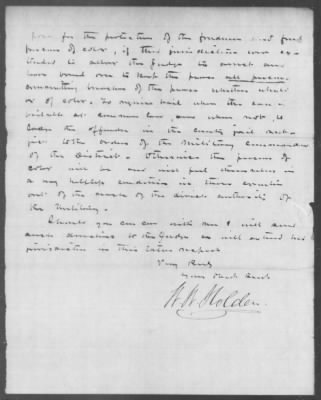 pose for the protection of the freedmen and free
persons of color, if their jurisdiction was ex-
tended to allow the Judge to arrest and
have bound over to keep the peace all persons
committing breaches of the peace whether white
or of color. To require bail when the case is
bailable at common law, and when not, to
lodge the offender in the county jail sub-
ject to the orders of the Military Commander
of the District. Otherwise the persons of
color will be and will feel themselves in
a very helpless condition in those counties
out of the reach of the direct authority of
the Military.
Should you concur with me I will send
such directions to the Judges as will extend their
jurisdiction in this respect
Very Resp
Your Obedt Servt
W. W. Holden.